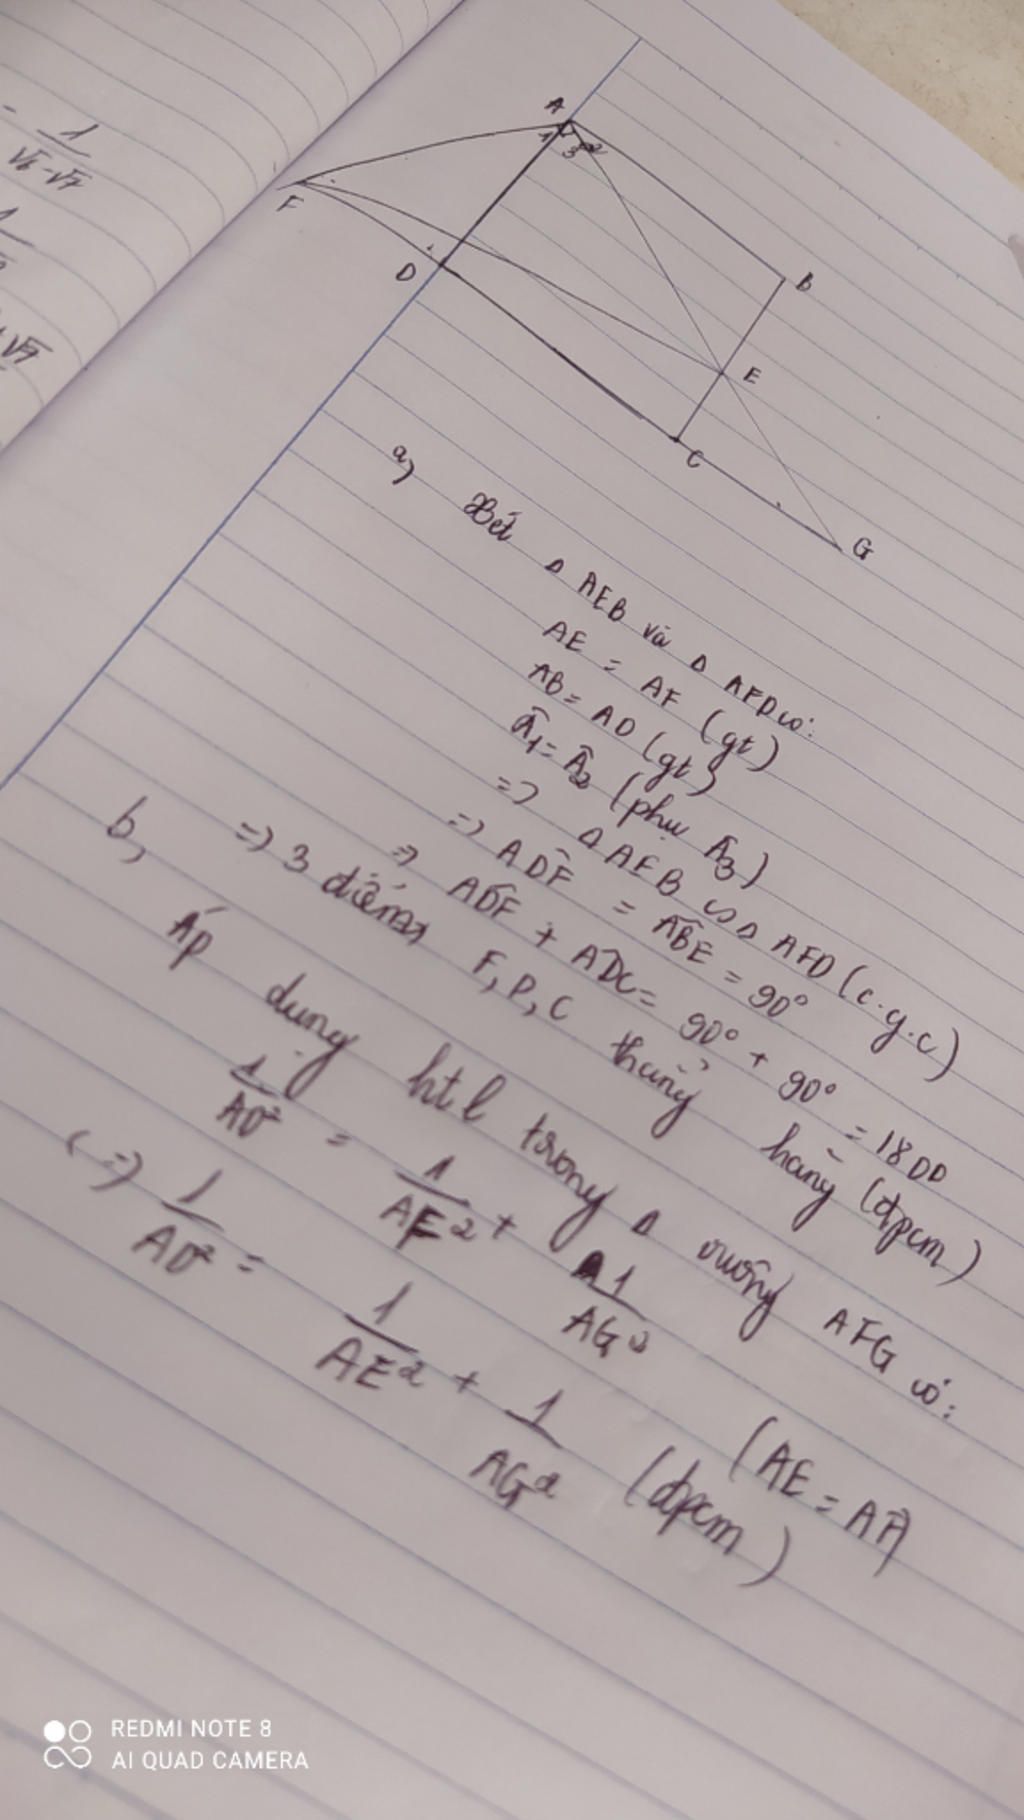 1
√6-√7
1
√7
A
1
2
3
F
D
B
E
C
G
a,
Xét Δ AEB và Δ AFD có:
AE = AF (gt)
AB = AD (gt)
Â1 = Â2 (phụ Â3)
=> Δ AEB ∽ Δ AFD (c.g.c)
=> ADF = ABE = 90°
=> ADF + ADC = 90° + 90° = 180°
=> 3 điểm F, D, C thẳng hàng (đpcm)
b,
Áp dụng htl trong Δ vuông AFG có:
1/AD² = 1/AF² + 1/AG²
(=) 1/AD² = 1/AE² + 1/AG² (AE = AF)
(đpcm)
REDMI NOTE 8
AI QUAD CAMERA